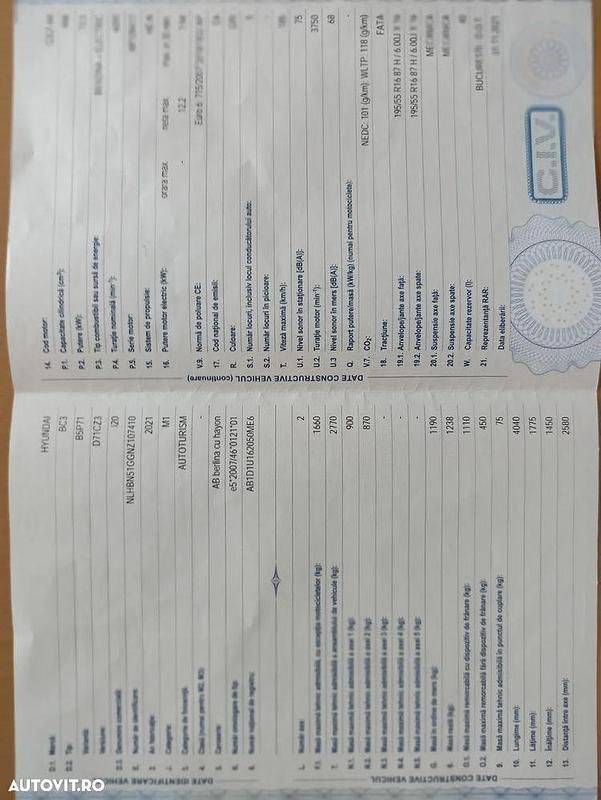 DATE IDENTIFICARE VEHICUL
D.1. Marcă: HYUNDAI
D.2. Tip: BC3
Variantă: B5P71
Versiune: D71CZ3
D.3. Denumire comercială: I20
E. Număr de identificare: NLHBN51GGNZ107410
2. An fabricație: 2021
J. Categorie: M1
3. Categorie de folosință: AUTOTURISM
4. Clasă (numai pentru M2, M3): -
5. Caroserie: AB berlina cu hayon
K. Număr omologare de tip: e5*2007/46*0121*01
6. Număr național de registru: AB1D1U16205OME6
DATE CONSTRUCTIVE VEHICUL
L. Număr axe: 2
F.1. Masă maximă tehnic admisibilă, cu excepția motocicletelor (kg): 1660
7. Masă maximă tehnic admisibilă a ansamblului de vehicule (kg): 2770
N.1. Masă maximă tehnic admisibilă a axei 1 (kg): 900
N.2. Masă maximă tehnic admisibilă a axei 2 (kg): 870
N.3. Masă maximă tehnic admisibilă a axei 3 (kg): -
N.4. Masă maximă tehnic admisibilă a axei 4 (kg): -
N.5. Masă maximă tehnic admisibilă a axei 5 (kg): -
G. Masă în ordine de mers (kg): 1190
8. Masă reală (kg): 1238
O.1. Masă maximă remorcabilă cu dispozitiv de frânare (kg): 1110
O.2. Masă maximă remorcabilă fără dispozitiv de frânare (kg): 450
9. Masă maximă tehnic admisibilă în punctul de cuplare (kg): 75
10. Lungime (mm): 4040
11. Lățime (mm): 1775
12. Înălțime (mm): 1450
13. Distanță între axe (mm): 2580
DATE CONSTRUCTIVE VEHICUL (continuare)
14. Cod motor:
P.1. Capacitate cilindrică (cm³):
P.2. Putere (kW):
P.3. Tip combustibil sau sursă de energie:
P.4. Turație nominală (min⁻¹):
P.5. Serie motor:
15. Sistem de propulsie:
16. Putere motor electric (kW): orara max. neta max. max. in 30 min.
- 12.2
V.9. Normă de poluare CE: Euro 6;
17. Cod național de emisii:
R. Culoare:
S.1. Număr locuri, inclusiv locul conducătorului auto:
S.2. Număr locuri în picioare:
T. Viteză maximă (km/h):
U.1. Nivel sonor în staționare [dB(A)]: 75
U.2. Turație motor (min⁻¹): 3750
U.3 Nivel sonor în mers [dB(A)]: 68
Q. Raport putere/masă (kW/kg) (numai pentru motociclete):
V.7. CO₂: NEDC: 101 (g/km); WLTP: 118 (g/km)
18. Tracțiune: FATA
19.1. Anvelope/jante axe față: 195/55 R16 87 H / 6.00J X 16
19.2. Anvelope/jante axe spate: 195/55 R16 87 H / 6.00J X 16
20.1. Suspensie axe față: MECANICA
20.2. Suspensie axe spate: MECANICA
W. Capacitate rezervor (l): 40
21. Reprezentanța RAR: BUCURESTI
Data eliberării:
C.I.V.
AUTOVIT.RO